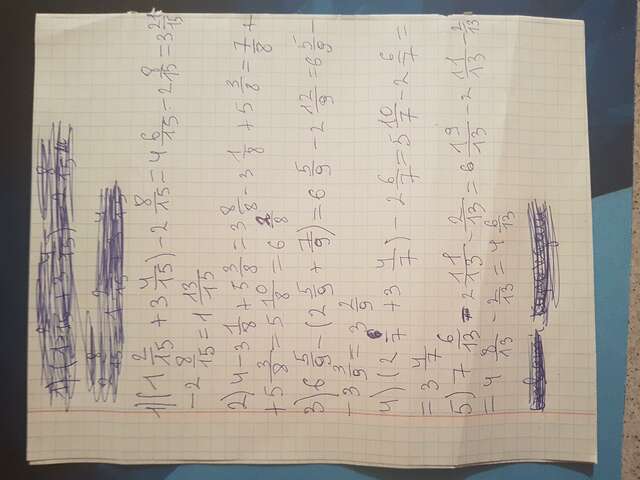 1) (1 2/15 + 3 4/15) - 2 8/15 = 4 6/15 - 2 8/15 = 3 21/15
- 2 8/15 = 1 13/15
2) 4 - 3 1/8 + 5 3/8 = 3 8/8 - 3 1/8 + 5 3/8 = 7/8 +
+ 5 3/8 = 5 10/8 = 6 2/8
3) 6 5/9 - (2 5/9 + 7/9) = 6 5/9 - 2 12/9 = 6 5/9 -
- 3 3/9 = 3 2/9
4) (2 6/7 + 3 4/7) - 2 6/7 = 5 10/7 - 2 6/7 =
= 3 4/7
5) 7 6/13 - 2 11/13 - 2/13 = 6 19/13 - 2 11/13 - 2/13
= 4 8/13 - 2/13 = 4 6/13